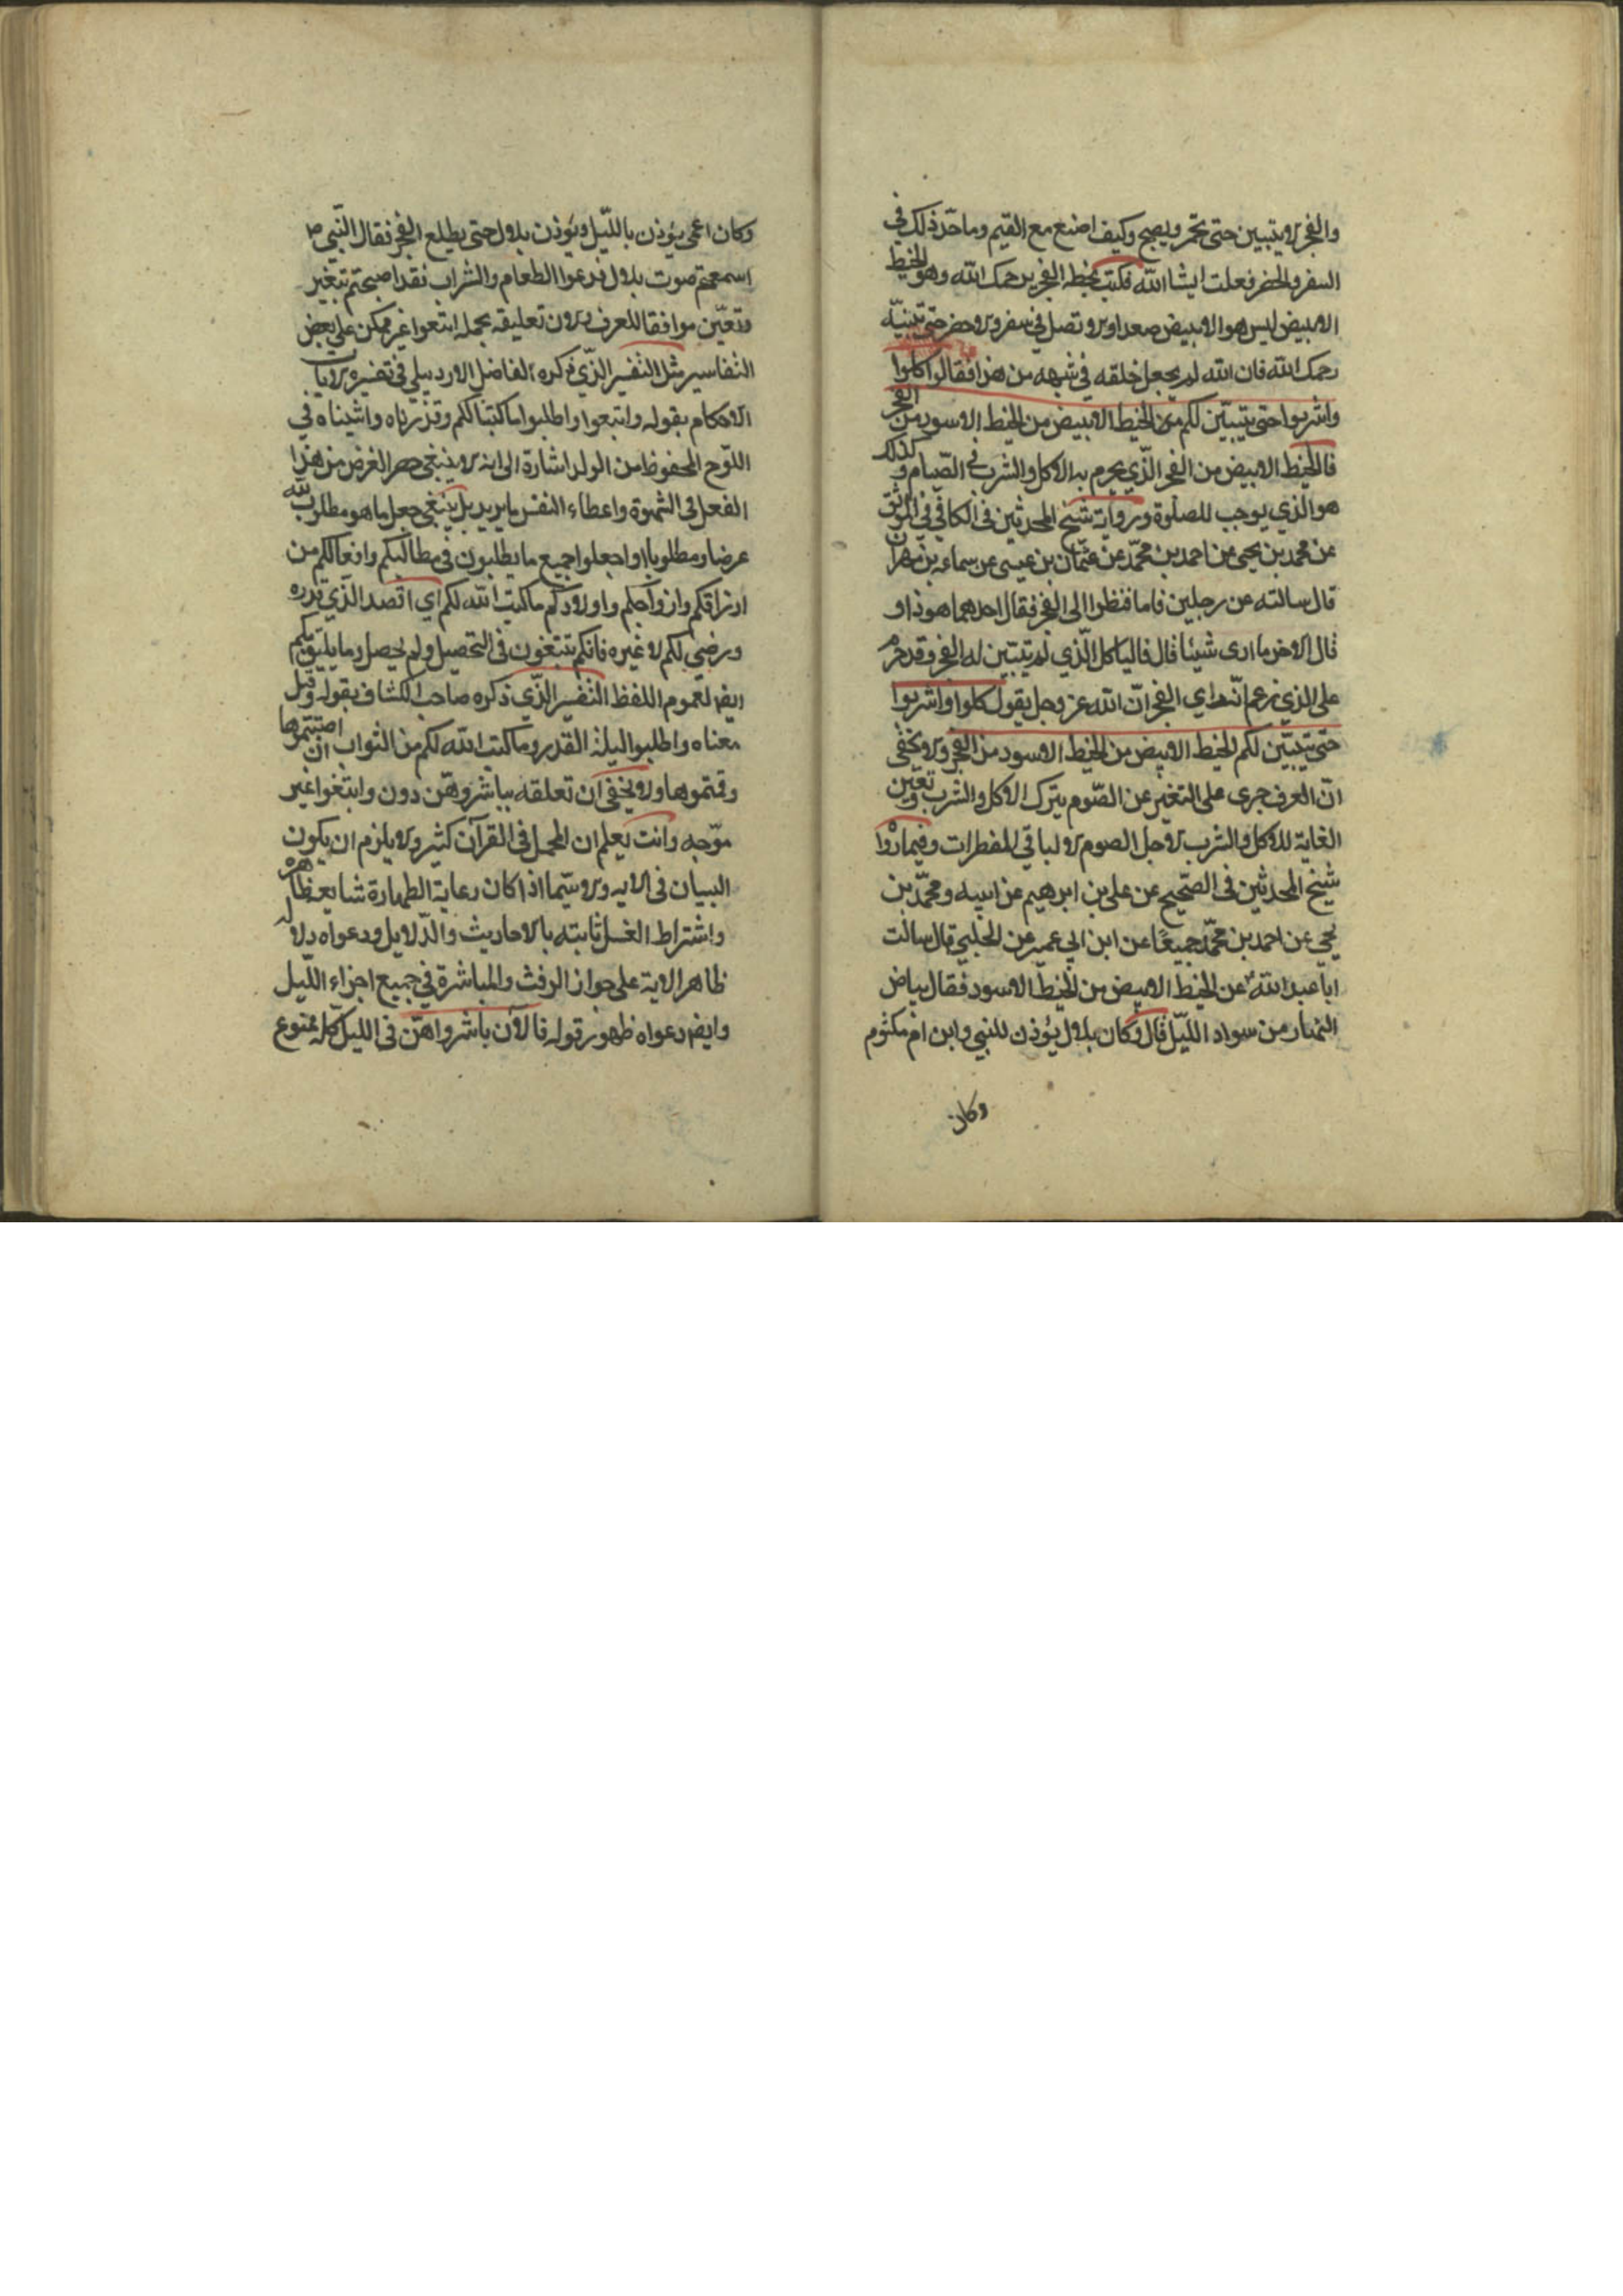 والفجر لا يتبين حتى يحمر ويصبح وكيف اصنع مع القيم وما حدّ ذلك في
السفر والحضر فعلت انشا الله فكتب بخطه الفجر يرحمك الله وهو الخيط
الابيض ليس هو الابيض صعدا ولا تصل في سفر ولا حضر حتى تبينه
رحمك الله فان الله لم يجعل خلقه في شبهه من هذا فقال كلوا
واشربوا حتى يتبيّن لكم الخيط الابيض من الخيط الاسود من الفجر
فالخيط الابيض من الفجر الّذي يحرم به الاكل والشرب في الصّيام وكذلك
هو الذي يوجب للصلوة ورواية شيخ المحدثين في الكافي في الموثق
عن محمد بن يحيى عن احمد بن محمّد عن عثمان بن عيسى عن سماعه بن مهران
قال سالته عن رجلين قاما فنظرا الى الفجر فقال احدهما هو ذا و
قال الاخر ما ارى شيئا قال فالياكل الّذي لم يتبيّن له الفجر وقد حرم
على الذي زعم انّه راي الفجر انّ الله عز وجل يقول كلوا واشربوا
حتى يتبيّن لكم الخيط الابيض من الخيط الاسود من الفجر ولا يخفى
انّ العرف جرى على التعبير عن الصّوم بترك الاكل والشرب وتعيّن
الغاية للاكل والشرب لاجل الصوم لا لباقي المفطرات وفيما روا
شيخ المحدثين في الصّحيح عن علي بن ابرهيم عن ابيه ومحمّد بن
يحيى عن احمد بن محمّد جميعًا عن ابن ابي عمير عن الحلبي قال سالت
ابا عبد الله عن الخيط الابيض من الخيط الاسود فقال بياض
النهار من سواد اللّيل قال وكان بلال يؤذن للنبي وابن ام مكتوم
وكان
وكان اعمى يؤذن باللّيل ويؤذن بلال حتى يطلع الفجر فقال النّبي ص
اسمعتم صوت بلال فدعوا الطعام والشراب فقد اصبحتم تعبير
وتعيّن موافقا للعرف ولان تعليقه بجمله ابتغوا غير ممكن على بعض
التفاسير مثل التفسير الذّي ذكره الفاضل الاردبيلي في تفسيره لايات
الاحكام بقوله وابتغوا واطلبوا ما كتبنا لكم وقدّرناه واثبتناه في
اللوّح المحفوظ من الولد اشارة الى انه لا ينبغي حصر الغرض من هذا
الفعل في الشهوة واعطاء النفس ما يريد بل ينبغي جعل ما هو مطلوب لله
عرضا ومطلوبا واجعلوا جميع ما يطلبون في مطالبكم وافعالكم من
ارزاقكم وازواجكم واولادكم ما كتب الله لكم اي اقصد الذّي قدره
ورضي لكم لا غيره فانكم تبتغون في التحصيل ولم يحصل وما يليق بكم
ايضا لعموم اللفظ التفسير الذّي ذكره صاحب الكشاف بقوله وقيل
معناه واطلبوا ليلة القدر وما كتب الله لكم من الثواب ان اصبتموها
وقمتموها ولا يخفى ان تعلقه بباشروهنّ دون وابتغوا غير
موّجه وانت يعلم ان المجمل في القرآن كثير ولا يلزم ان يكون
البيان في الايه ولا سيّما اذا كان رعاية الطهارة شايعه ظاهره
واشتراط الغسل ثابته بالاحاديث والدّلايل ودعواه دلاله
ظاهر الاية على جواز الرفث والمباشرة في جميع اجزاء اللّيل
وايضا دعواه ظهور قوله فالآن باشرواهنّ في الليل كله ممنوع